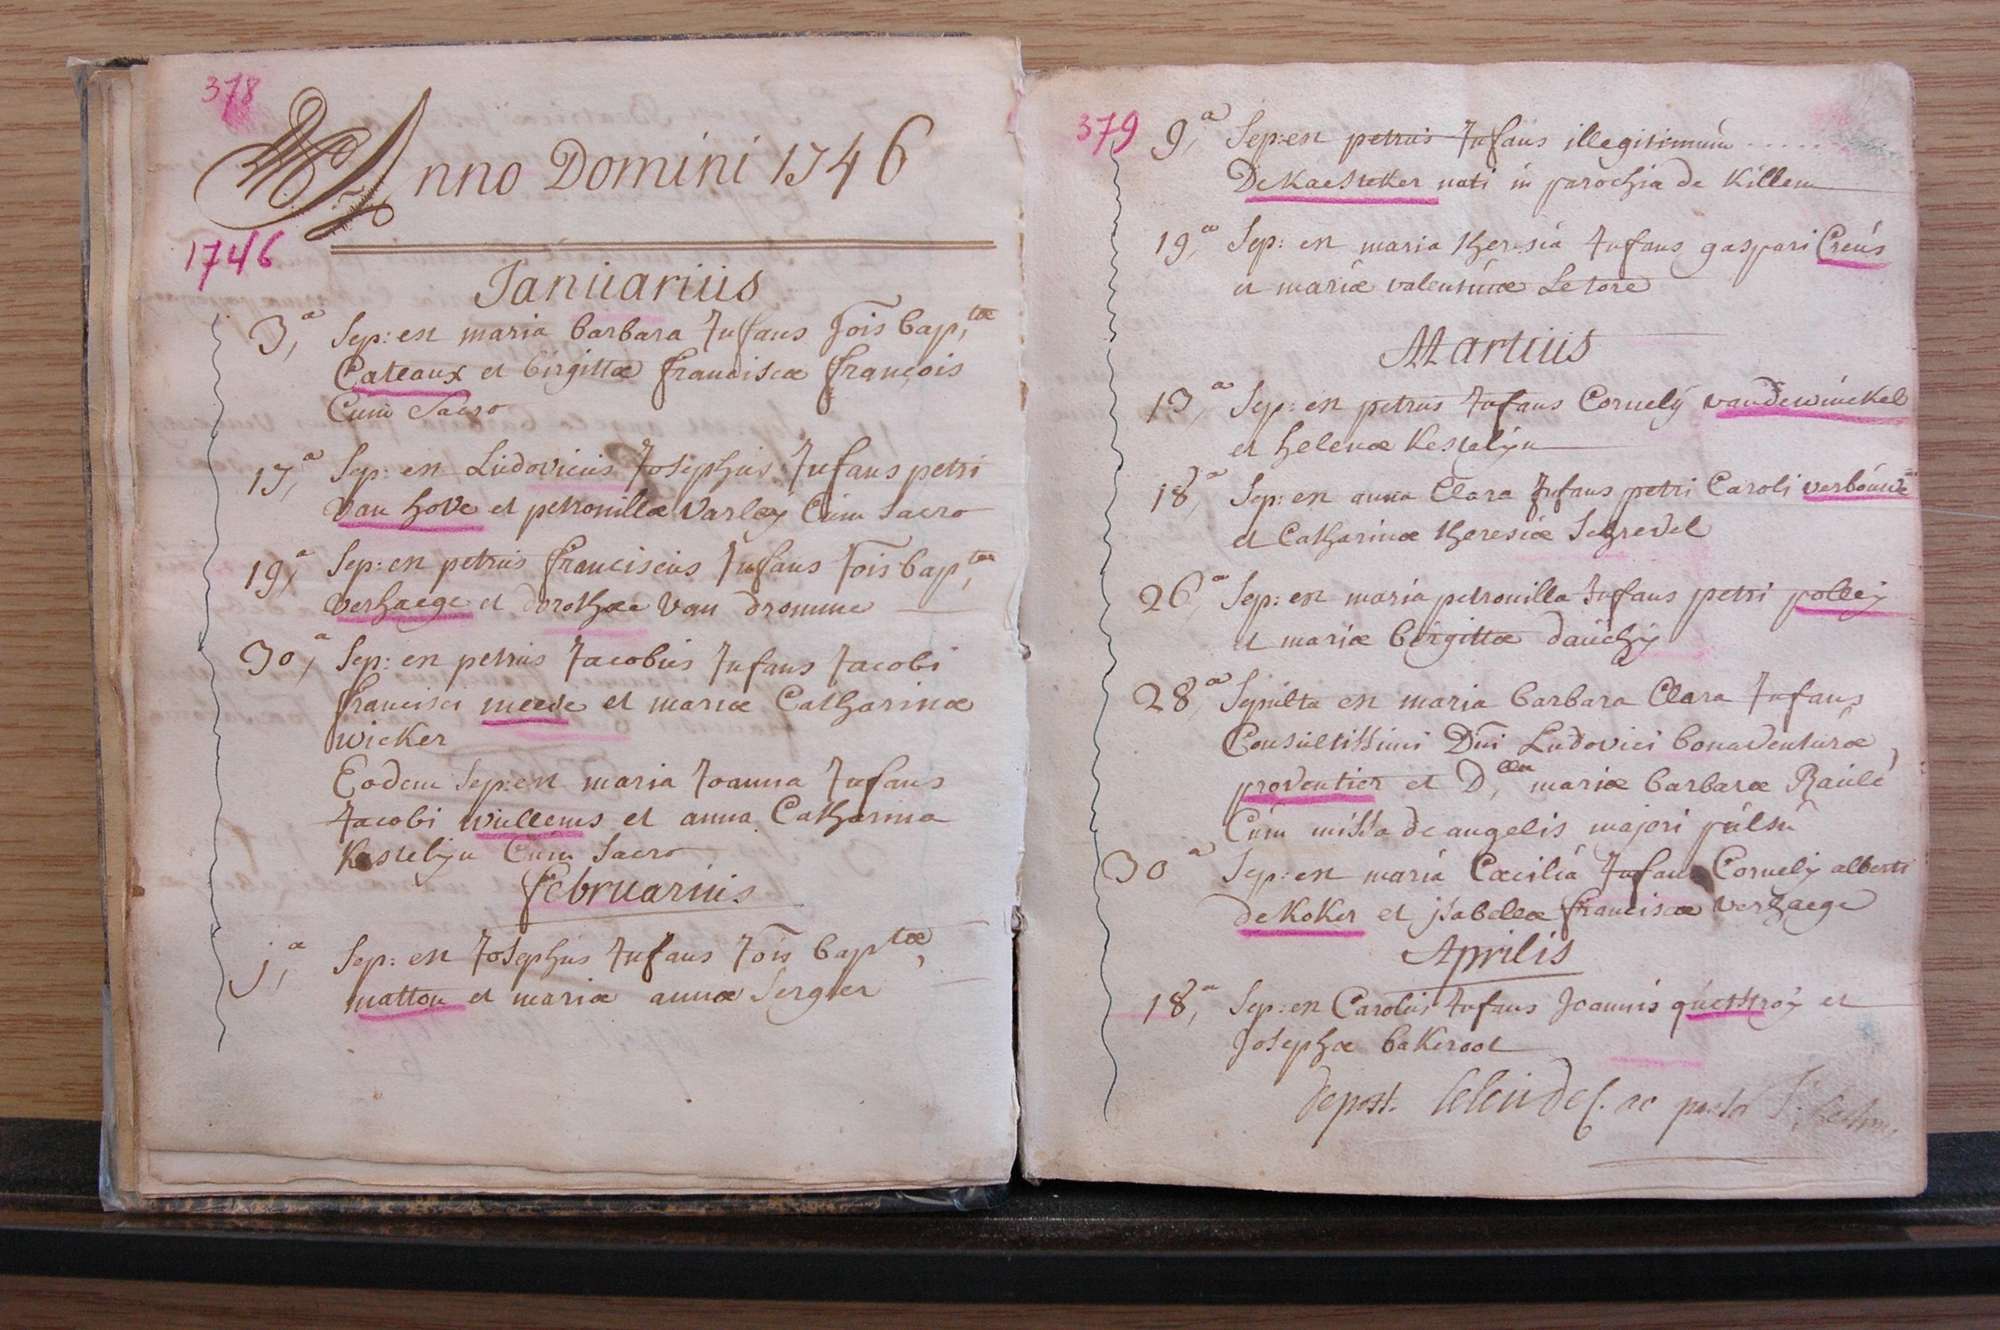 378
Anno Domini 1746
1746
Januarius
3,a Sep: est maria barbara Infans Jois bap,tæ
Cateaux et birgittæ franciscæ françois
Cum Sacro
17,a Sep: est Ludovicus Josephus Infans petri
van hove et petronillæ Varley Cum Sacro
19,a Sep: est petrus franciscus Infans Jois bap,tæ
verhaege et dorothæe van dromme
30,a Sep: est petrus Jacobus Infans Jacobi
francisci meese et mariæ Catharinæ
wicker
Eodem Sep: est maria Joanna Infans
Jacobi willems et anna Catharina
Kestelijn Cum Sacro
februarius
j,a Sep: est Josephus Infans Jois bap,tæ
matton et mariæ annæ Sergier
379
9,a Sep: est petrus Infans illegitimum .....
De Kaesteker nati in parochia de Killem
19,a Sep: est maria theresia Infans gaspari Creus
et mariæ valentinæ Letore
Martius
13,a Sep: est petrus Infans Cornelÿ vandewinckel
et helenæ Kestelijn
18,a Sep: est anna Clara Infans petri Caroli
et Catharinæ theresiæ Schrevel
26,a Sep: est maria petronilla Infans petri polleÿ
et mariæ birgittæ dauchÿ
28,a Sepulta est maria barbara Clara Infans
Consultissimi Dni Ludovici bonaventuræ
proventier et D,llæ mariæ barbaræ Raulé
Cum missa de angelis majori pulsu
30 a Sep: est maria Cæcilia Infans Cornelÿ alberti
de Koker et jsabellæ franciscæ verhaege
Aprilis
18,a Sep: est Carolus Infans Joannis questroÿ et
Josephæ bakeroot